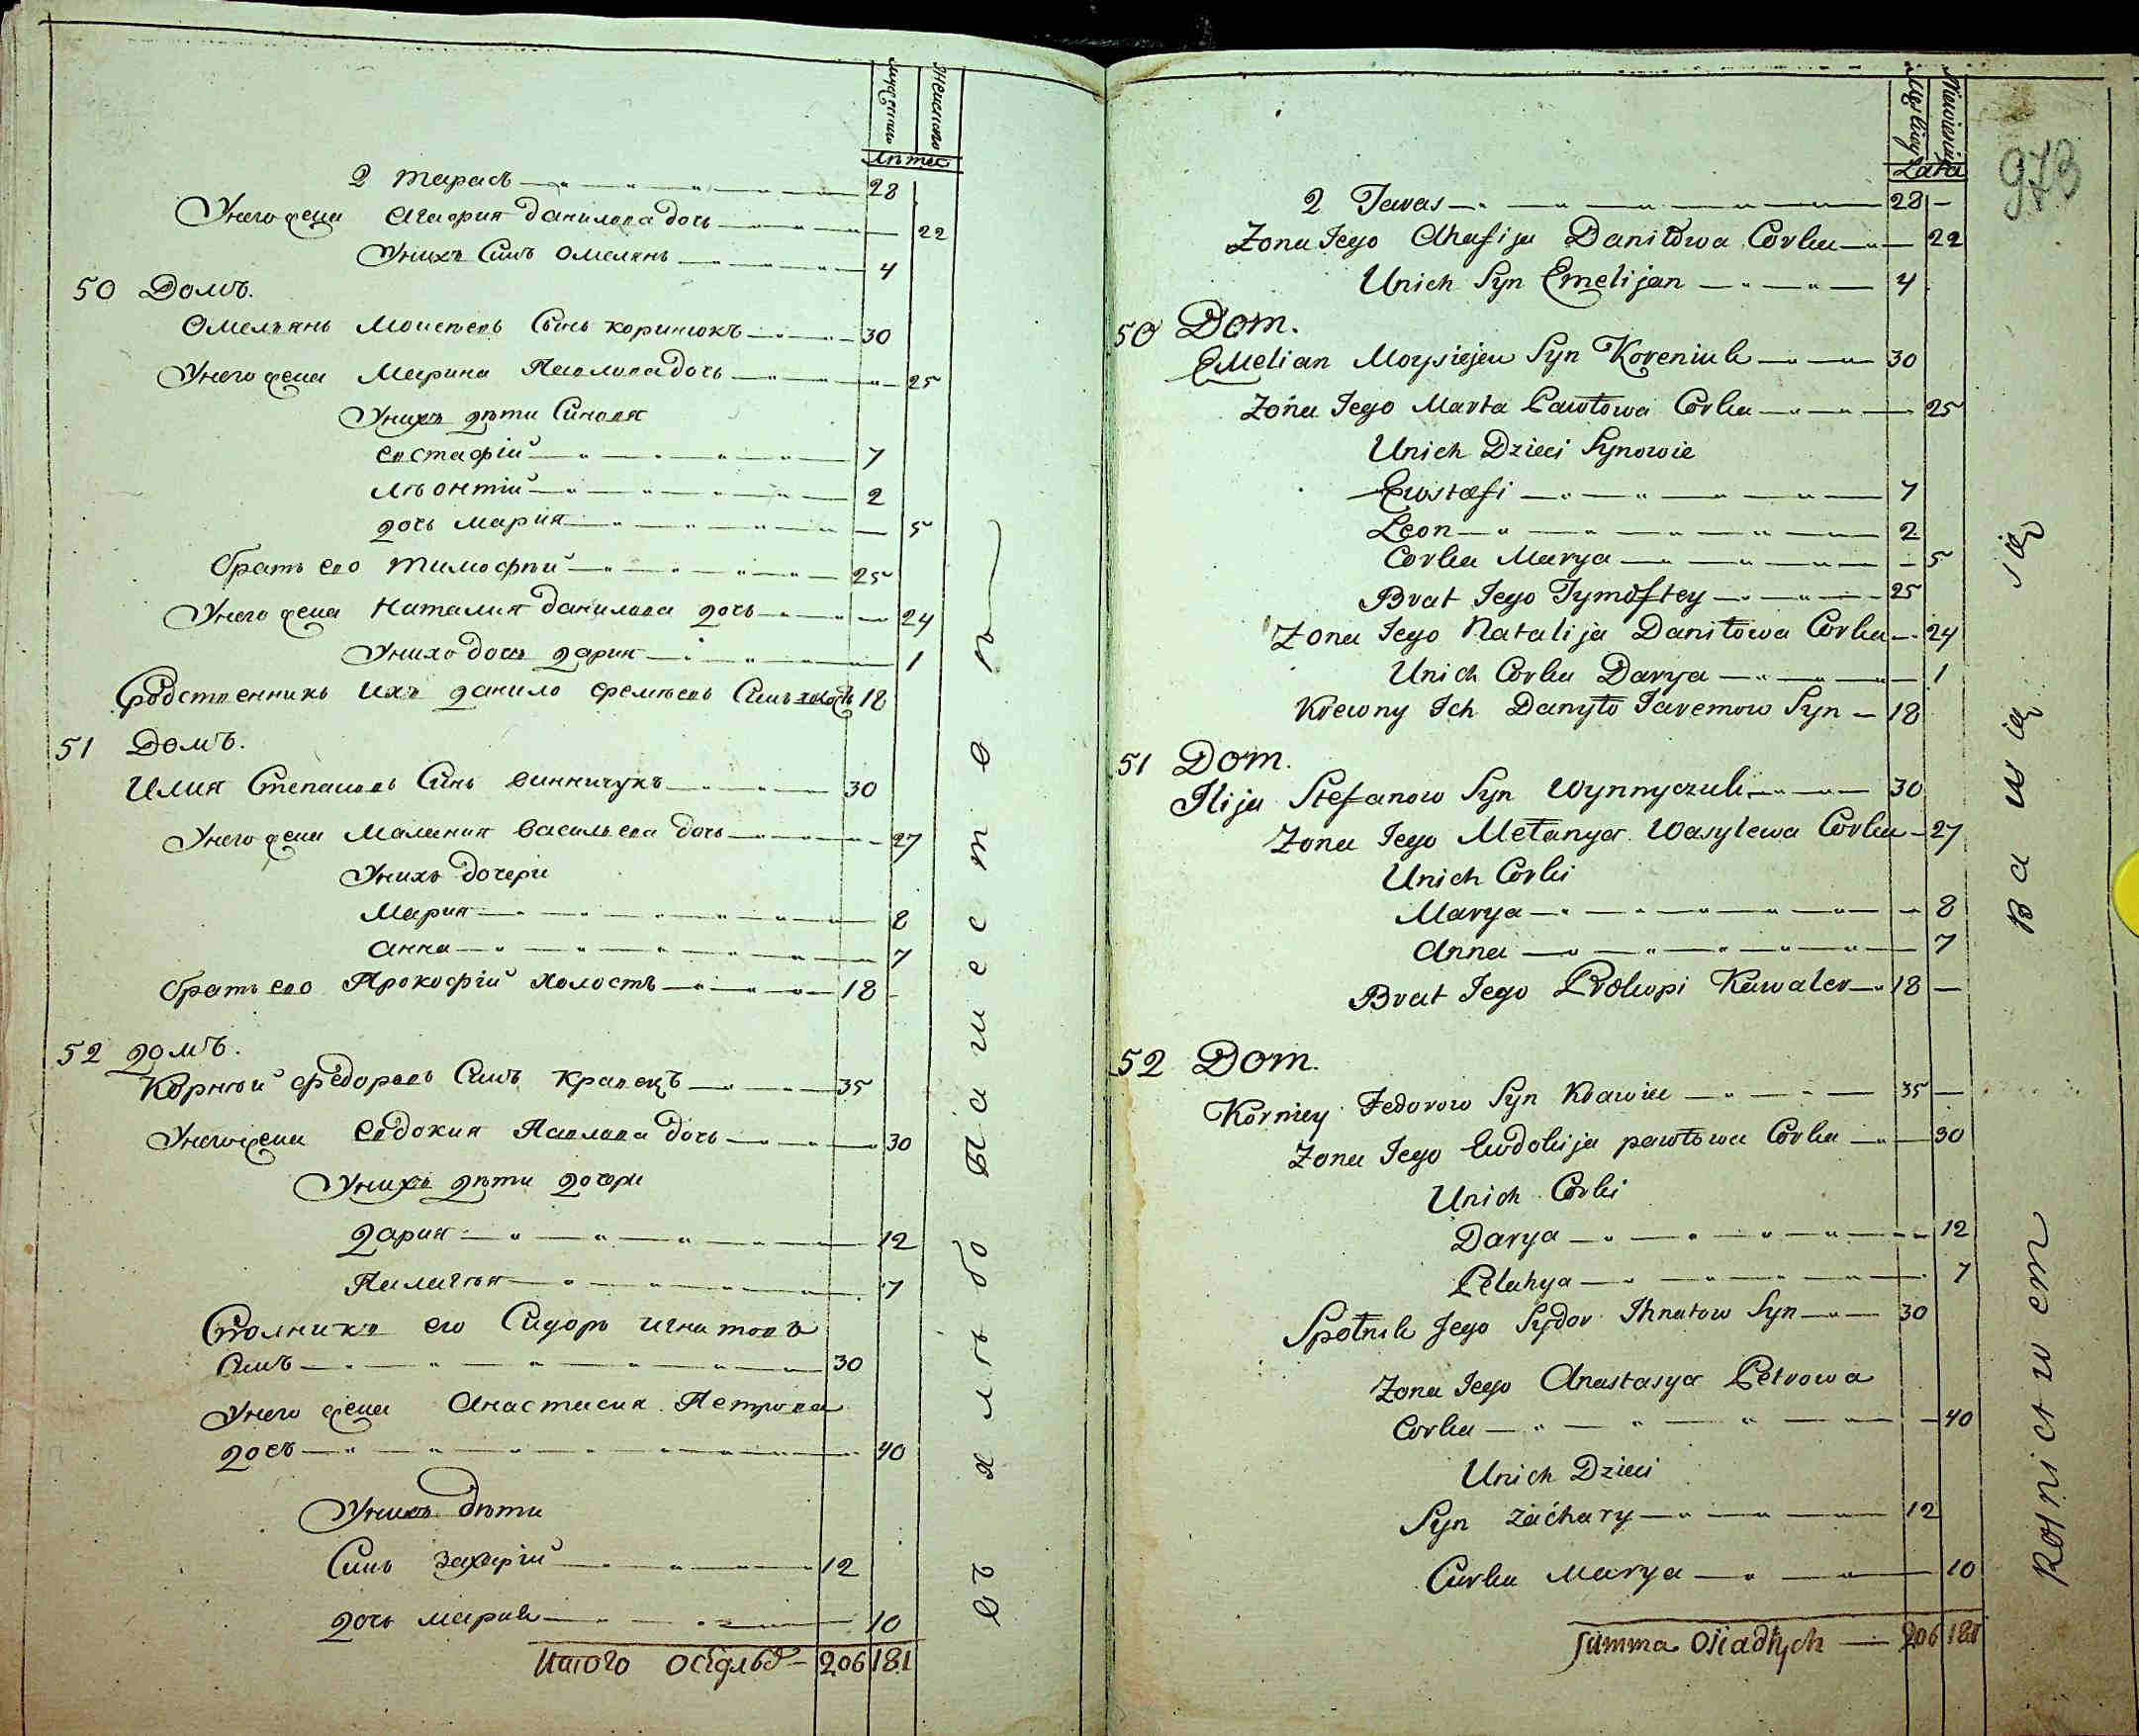 мужеска женска
лѣта
2 тарасъ 28
Унего жена Агафия данилова дочь 22
Унихъ Синъ омелянъ 4
50 Домъ.
Омельянъ Моисѣевъ Синъ коринюкъ 30
Унего жена Марина Павлова дочь 25
Унихъ дѣти Синовя
евстафій 7
лѣонтій 2
дочь мария 5
братъ его тимофѣй 25
Унего жена Наталия данилова дочь 24
Унихъ дочь дария 1
Сродственникъ ихъ данило еремѣевъ Синъ холостъ 18
51 Домъ.
Илия Степановъ Синъ винничукъ 30
Унего жена Малания василѣва дочь 27
Унихъ дочери
Мария 8
анна 7
братъ его Прокофій холостъ 18
52 домъ.
Корнѣй федоровъ Синъ кравецъ 35
Унего жена евдокия Павлова дочь 30
Унихъ дѣти дочери
дария 12
Палагѣя 7
Столникъ его Сидоръ игнатовъ
Синъ 30
Унего жена Анастасия Петрова
дочь 40
Унихъ дѣти
Синъ захарій 12
дочь мария 10
Итого осѣдлыхъ 206 181
Męskiey Niewieściey
Lata
973
2 Taras 28 —
Zona Jego Ahafija Daniłowa Corka 22
Unich Syn Emelijan 4
50 Dom.
Emelian Moysiejew Syn Koreniuk 30
Zona Jego Marta Pawłowa Corka 25
Unich Dzieci Synowie
Ewstafi 7
Leon 2
Corka Marya 5
Brat Jego Tymoftey 25
Zona Jego Natalija Daniłowa Corka 24
Unich Corka Darya 1
Krewny Ich Danyło Jaremow Syn 18
51 Dom.
Ilija Stefanow Syn Wynnyczuk 30
Zona Jego Mełanya Wasylewa Corka 27
Unich Corki
Marya 8
Anna 7
Brat Jego Prokopi Kawaler 18 —
52 Dom.
Korniey Fedorow Syn Krawiec 35 —
Zona Jego Ewdokija pawłowa Corka 30
Unich Corki
Darya 12
Pelahya 7
Spolnik Jego Sydor Ihnatow Syn 30
Zona Jego Anastasya Petrowa
Corka 40
Unich Dzieci
Syn Zachary 12
Curka Marya 10
Summa Osiadłych 206 181